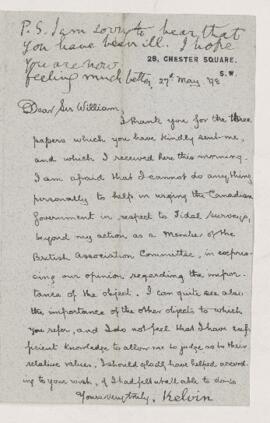 P.S. I am sorry to hear that
you have been ill. I hope
you are now
feeling much better
28, CHESTER SQUARE.
S.W.
27th May, /98
Dear Sir William,
I thank you for the three
papers which you have kindly sent me,
and which I received this morning.
I am afraid that I cannot do anything
personally to help in urging the Canadian
Government in respect to Tidal surveys,
beyond my action as a Member of the
British Association Committee, in express-
ing our opinion regarding the impor-
tance of the object. I can quite see also
the importance of the other objects to which
you refer, and I do not feel that I have suf-
ficient knowledge to allow me to judge as to their
relative values. I should gladly have helped accord-
ing to your wish, if I had felt at all able to do so
Yours very truly, Kelvin